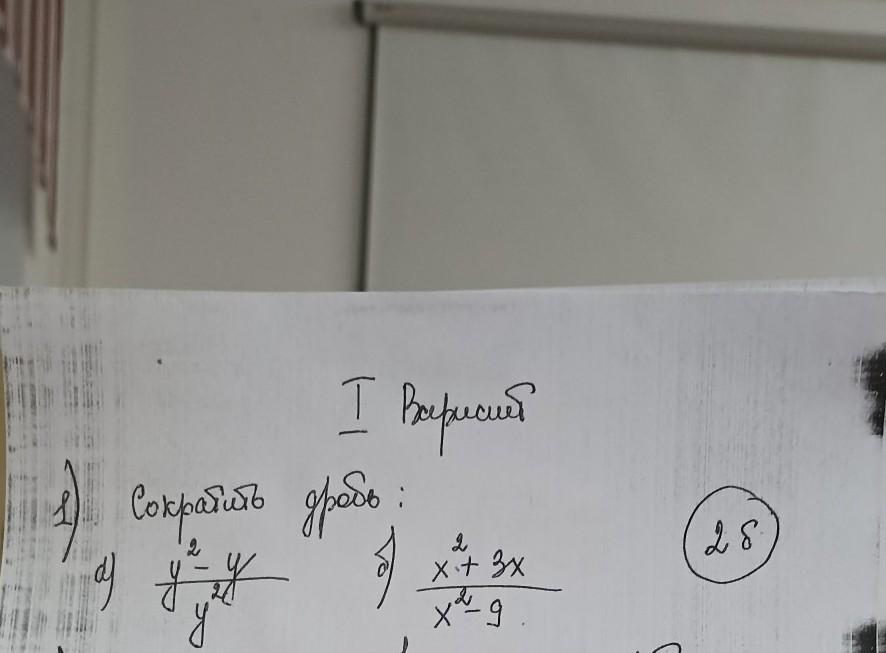 I Вариант
1) Сократить дробь:
2 б
а) (y² - y) / y² б) (x² + 3x) / (x² - 9)